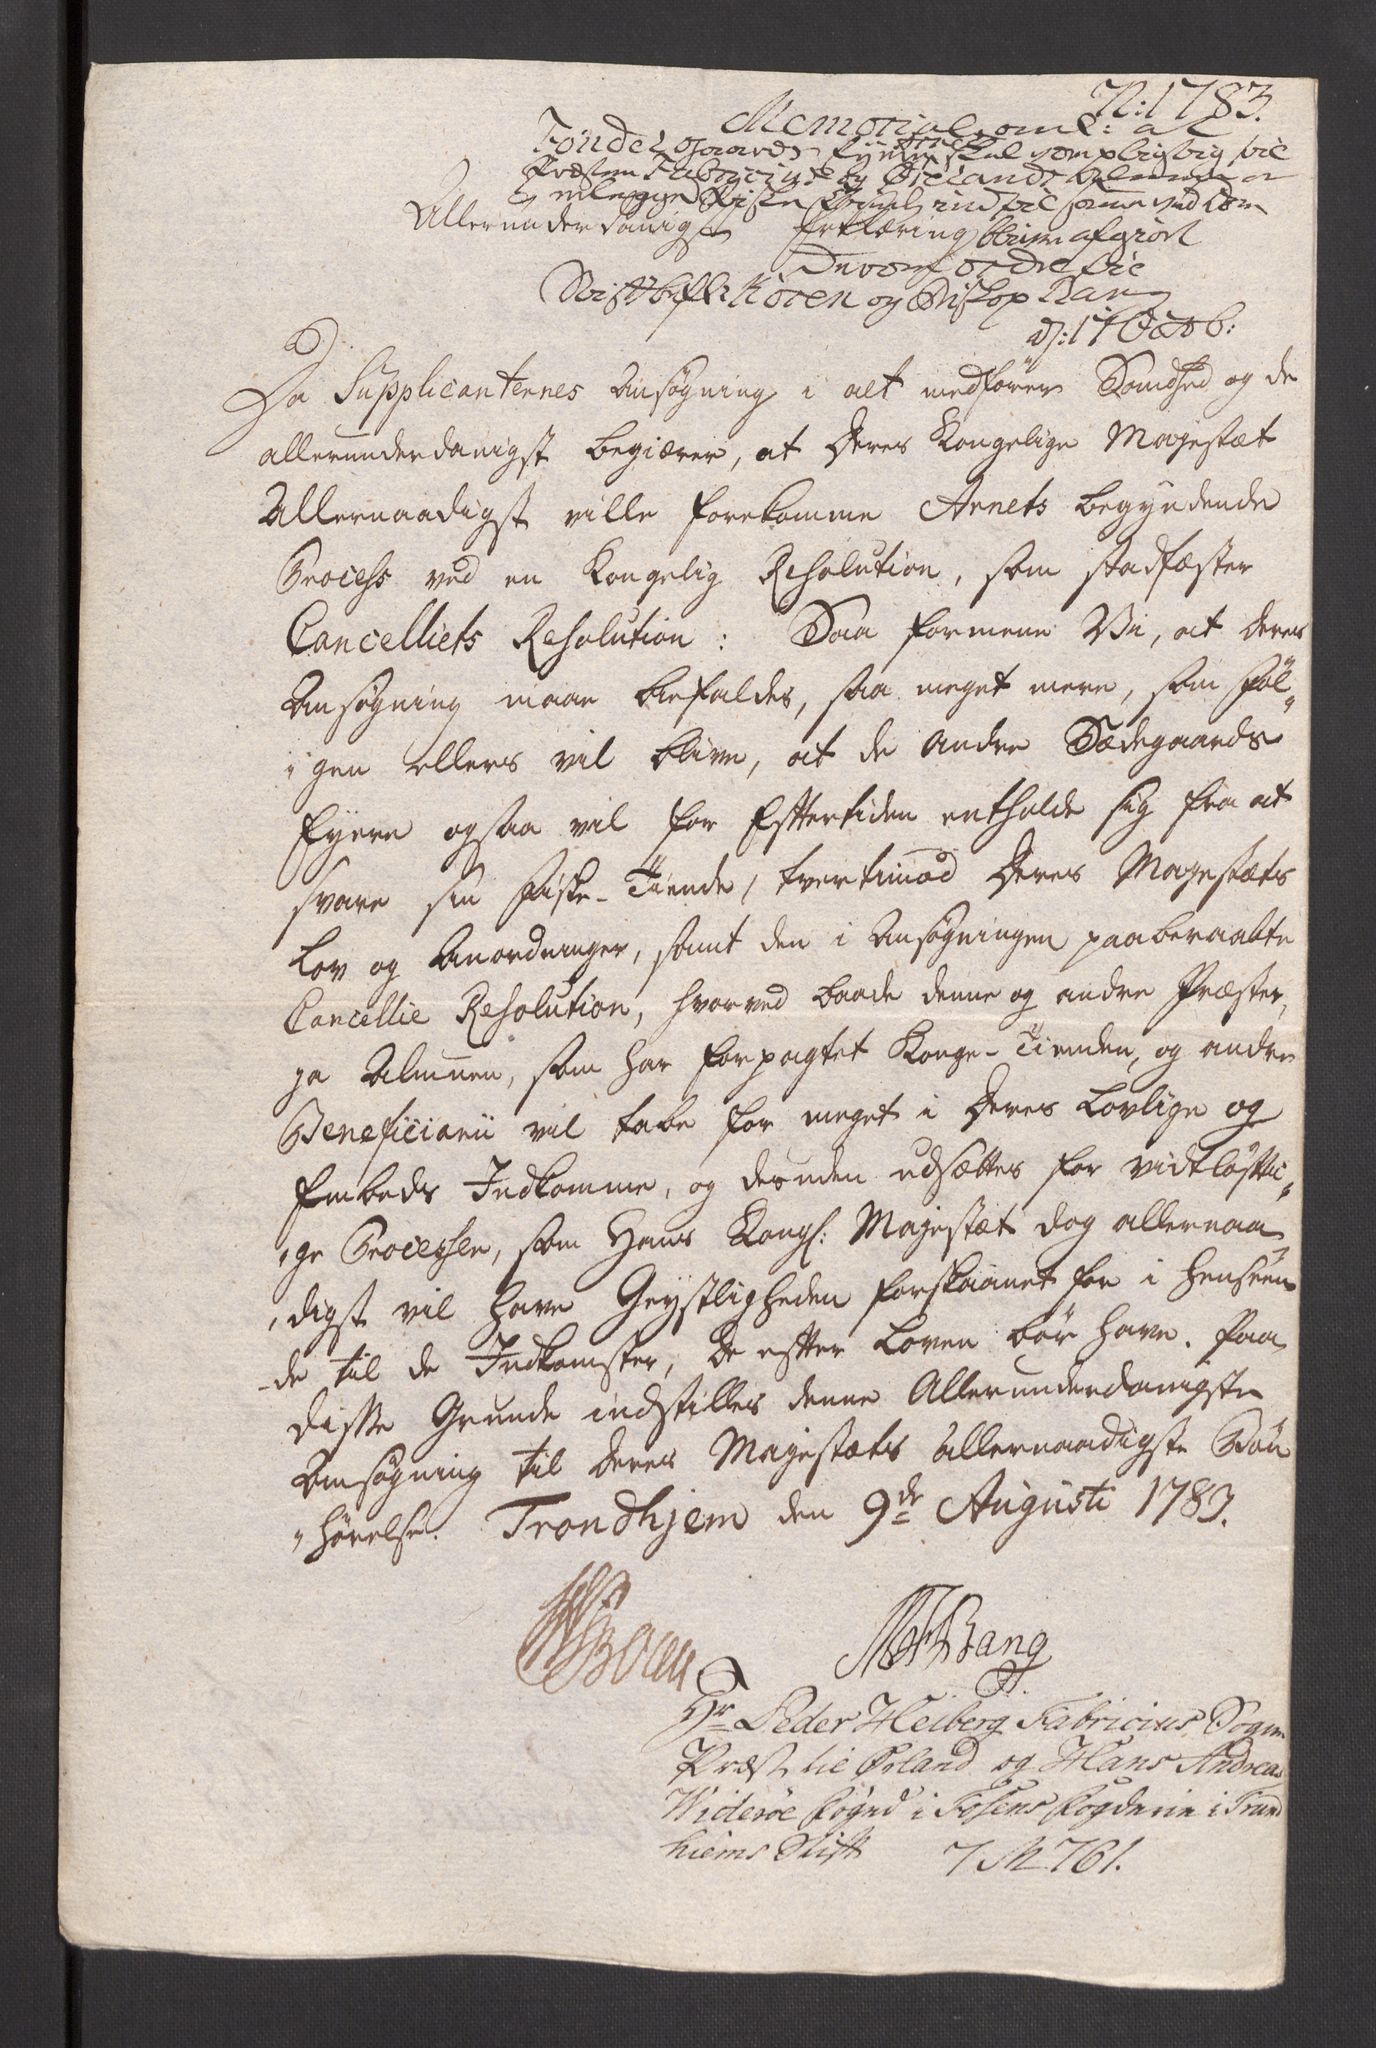 N: 1783.
Memorial om: at
Tönder gaards Eyere skal være pligtig til
Præsten Fabricius og Ørlands Almue at
erlegge Fiske Tiende
Allerunderdanigst Erklæring bliven afgiort
Derom ordre til
Stiftbefh: Koren og Biskop Bang
d: 17 Octob:
Da Supplicanternes Ansøgning i alt medfører Sandhed og de
allerunderdanigst begiærer, at Deres Kongelige Majestæt
Allernaadigst ville forekomme Arnets begyndende
Process ved en Kongelig Resolution, som stadfæster
Cancelliets Resolution: Saa formene Vi, at deres
Ansøgning maae biefaldes, saa meget mere, som Føl-
igen ellers vil blive, at de andre Sædegaards
Eyere ogsaa vil for Efttertiden entholde sig fra at
svare sin Fiske-Tiende, tvertimod Deres Majestæts
Lov og Anordninger, samt den i Ansøgningen paaberaabte
Cancellie Resolution, hvorved baade denne og andre Præster,
ja Almuen, som har forpagtet Konge-Tienden, og andre
Beneficiarii vil tabe for meget i Deres Lovlige og
Embeds Indkomme, og desuden udsættes for vidtløftti-
ge Processer, som Hans Kongl: Majestæt dog allernaa-
digst vil have Geystligheden forskaanet for i Henseen-
de til de Indkomster, De eftter Loven bör have. Paa
disse Grunde indstilles denne Allerunderdanigste
Ansøgning til Deres Majestæts allernaadigste Bön-
hörelse. Trondhjem den 9de Augusti 1783.
Bang
Hr Peder Heiberg Fabricius Sogne
Præst til Ørland og Hans Andreas
Widerøe Foged i Fosens Fogderie i Trund
hiems Stift 7 M 761.